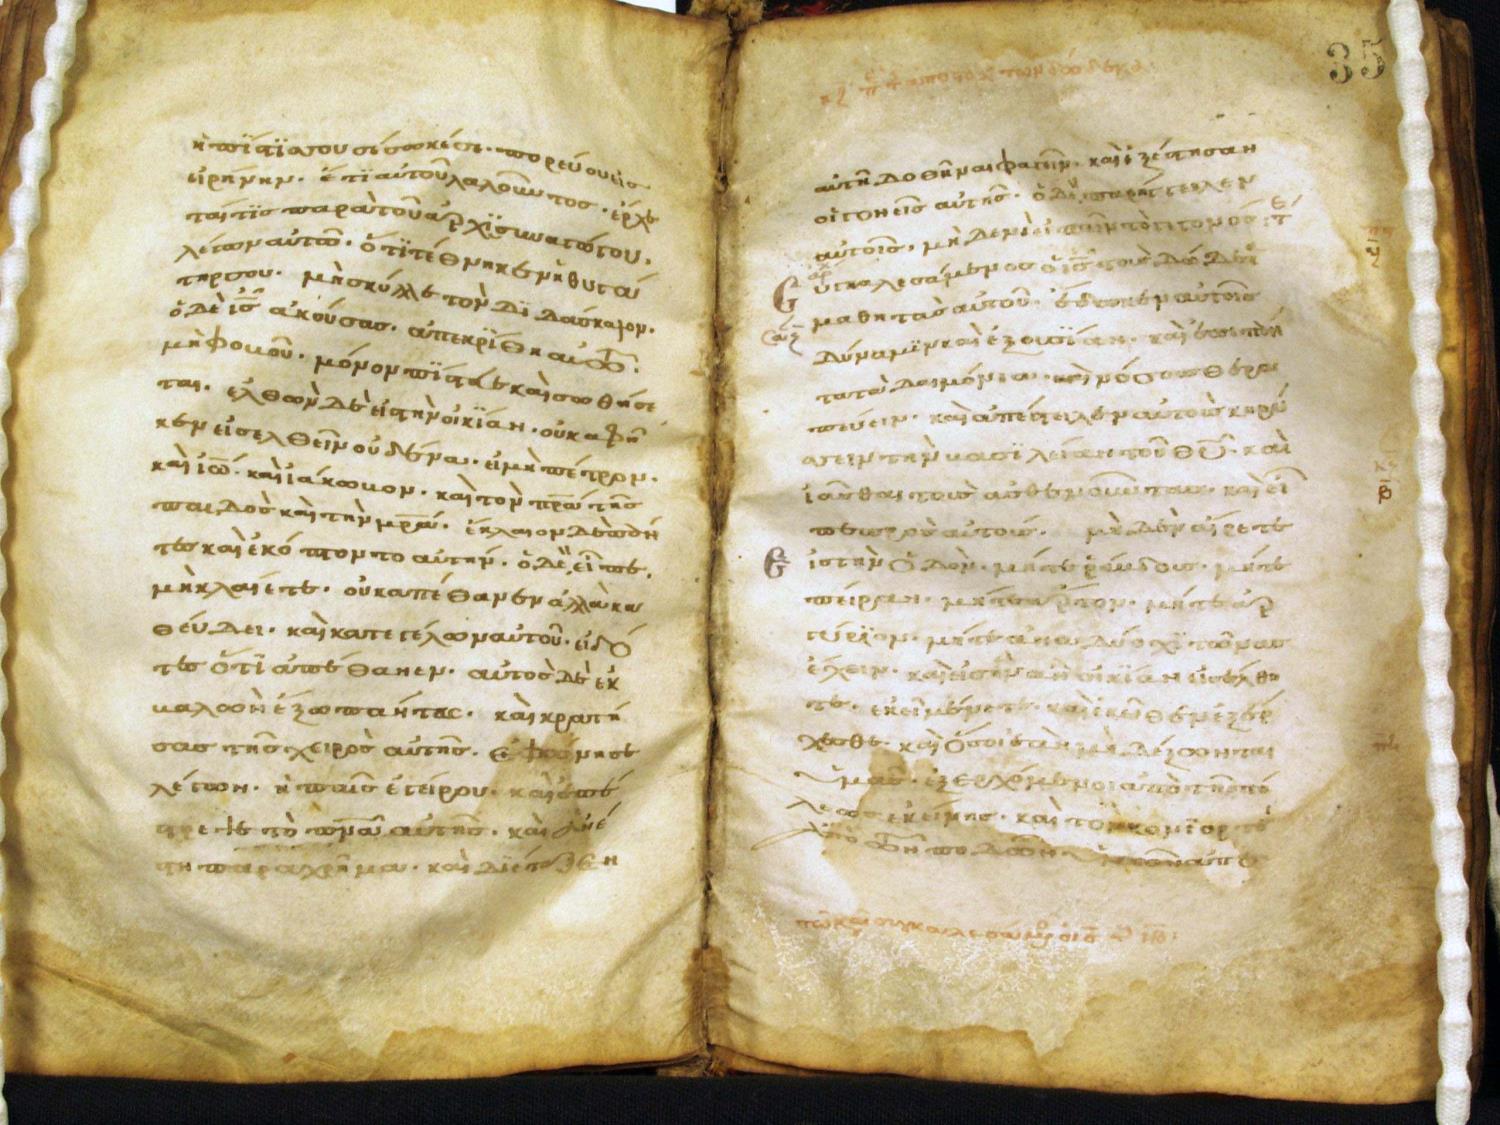 ἡ πίστις σου σέσωκέ σε· πορεύου εἰς
εἰρήνην· ἔτι αὐτοῦ λαλοῦντος· ἔρχε
ταί τις παρὰ τοῦ ἀρχισυναγώγου,
λέγων αὐτῶ· ὅτι τέθνηκεν ἡ θυγά
τηρ σου· μὴ σκύλλε τὸν διδάσκαλον·
ὁ δὲ ις ἀκούσας· ἀπεκρίθη αὐτῶ·
μὴ φοβοῦ· μόνον πίστευε καὶ σωθήσε
ται· ἐλθὼν δὲ εἰς τὴν οἰκίαν· οὐκ ἀφῆ
κεν εἰσελθεῖν οὐδένα· εἰ μὴ πέτρον·
καὶ ἰω· καὶ ἰάκωβον· καὶ τὸν πρα τῆς
παιδὸς καὶ τὴν μρα· ἔκλαιον δὲ πάν
τες καὶ ἐκόπτοντο αὐτήν· ὁ δὲ εἶπε,
μὴ κλαίετε· οὐκ ἀπέθανεν ἀλλὰ κα
θεύδει· καὶ κατεγέλων αὐτοῦ· εἰδό
τες ὅτι ἀπέθανεν· αὐτὸς δὲ ἐκ
βαλὼν ἔξω πάντας· καὶ κρατή
σας τῆς χειρὸς αὐτῆς· ἐφώνησε
λέγων· ἡ παῖς ἐγείρου· καὶ ἐπέ
στρεψε τὸ πνα αὐτῆς· καὶ ἀνέ
στη παραχρῆμα· καὶ διέταξεν
35
αὐτῆ δοθῆναι φαγεῖν· καὶ ἐξέστησαν
οἱ γονεῖς αὐτῆς· ὁ δὲ παρήγγειλεν
αὐτοῖς· μὴ δενὶ εἰπεῖν τὸ γεγονός·
συγκαλεσάμενος ὁ ις τοὺς δώδεκα
μαθητὰς αὐτοῦ· ἔδωκεν αὐτοῖς
δύναμιν καὶ ἐξουσίαν· καὶ ἐπὶ πάν
τα τὰ δαιμόνια· καὶ νόσους θερα
πεύειν· καὶ ἀπέστειλεν αὐτοὺς κηρύ
σσειν τὴν βασιλείαν τοῦ θυ· καὶ
ἰᾶσθαι τοὺς ἀσθενοῦντας· καὶ εἶ
πε πρὸς αὐτούς· μὴδὲν αἴρετε
εἰς τὴν ὁδόν· μήτε ῥάβδους· μήτε
πείραν· μήτε ἄρτον· μήτε ἀρ
γύριον· μήτε ἀνὰ δύο χιτῶνας
ἔχειν· καὶ εἰς ἣν ἂν οἰκίαν εἰσέλθη
τε· ἐκεῖ μένετε· καὶ ἐκεῖθεν ἐξέρ
χεσθε· καὶ ὅσοι ἐὰν μὴ δέξονται
ὑμᾶς· ἐξερχόμενοι ἀπὸ τῆς πό
λεως ἐκείνης· καὶ τὸν κονιορτὸ
ἀπὸ τῶν ποδῶν ὑμῶν ἀπο